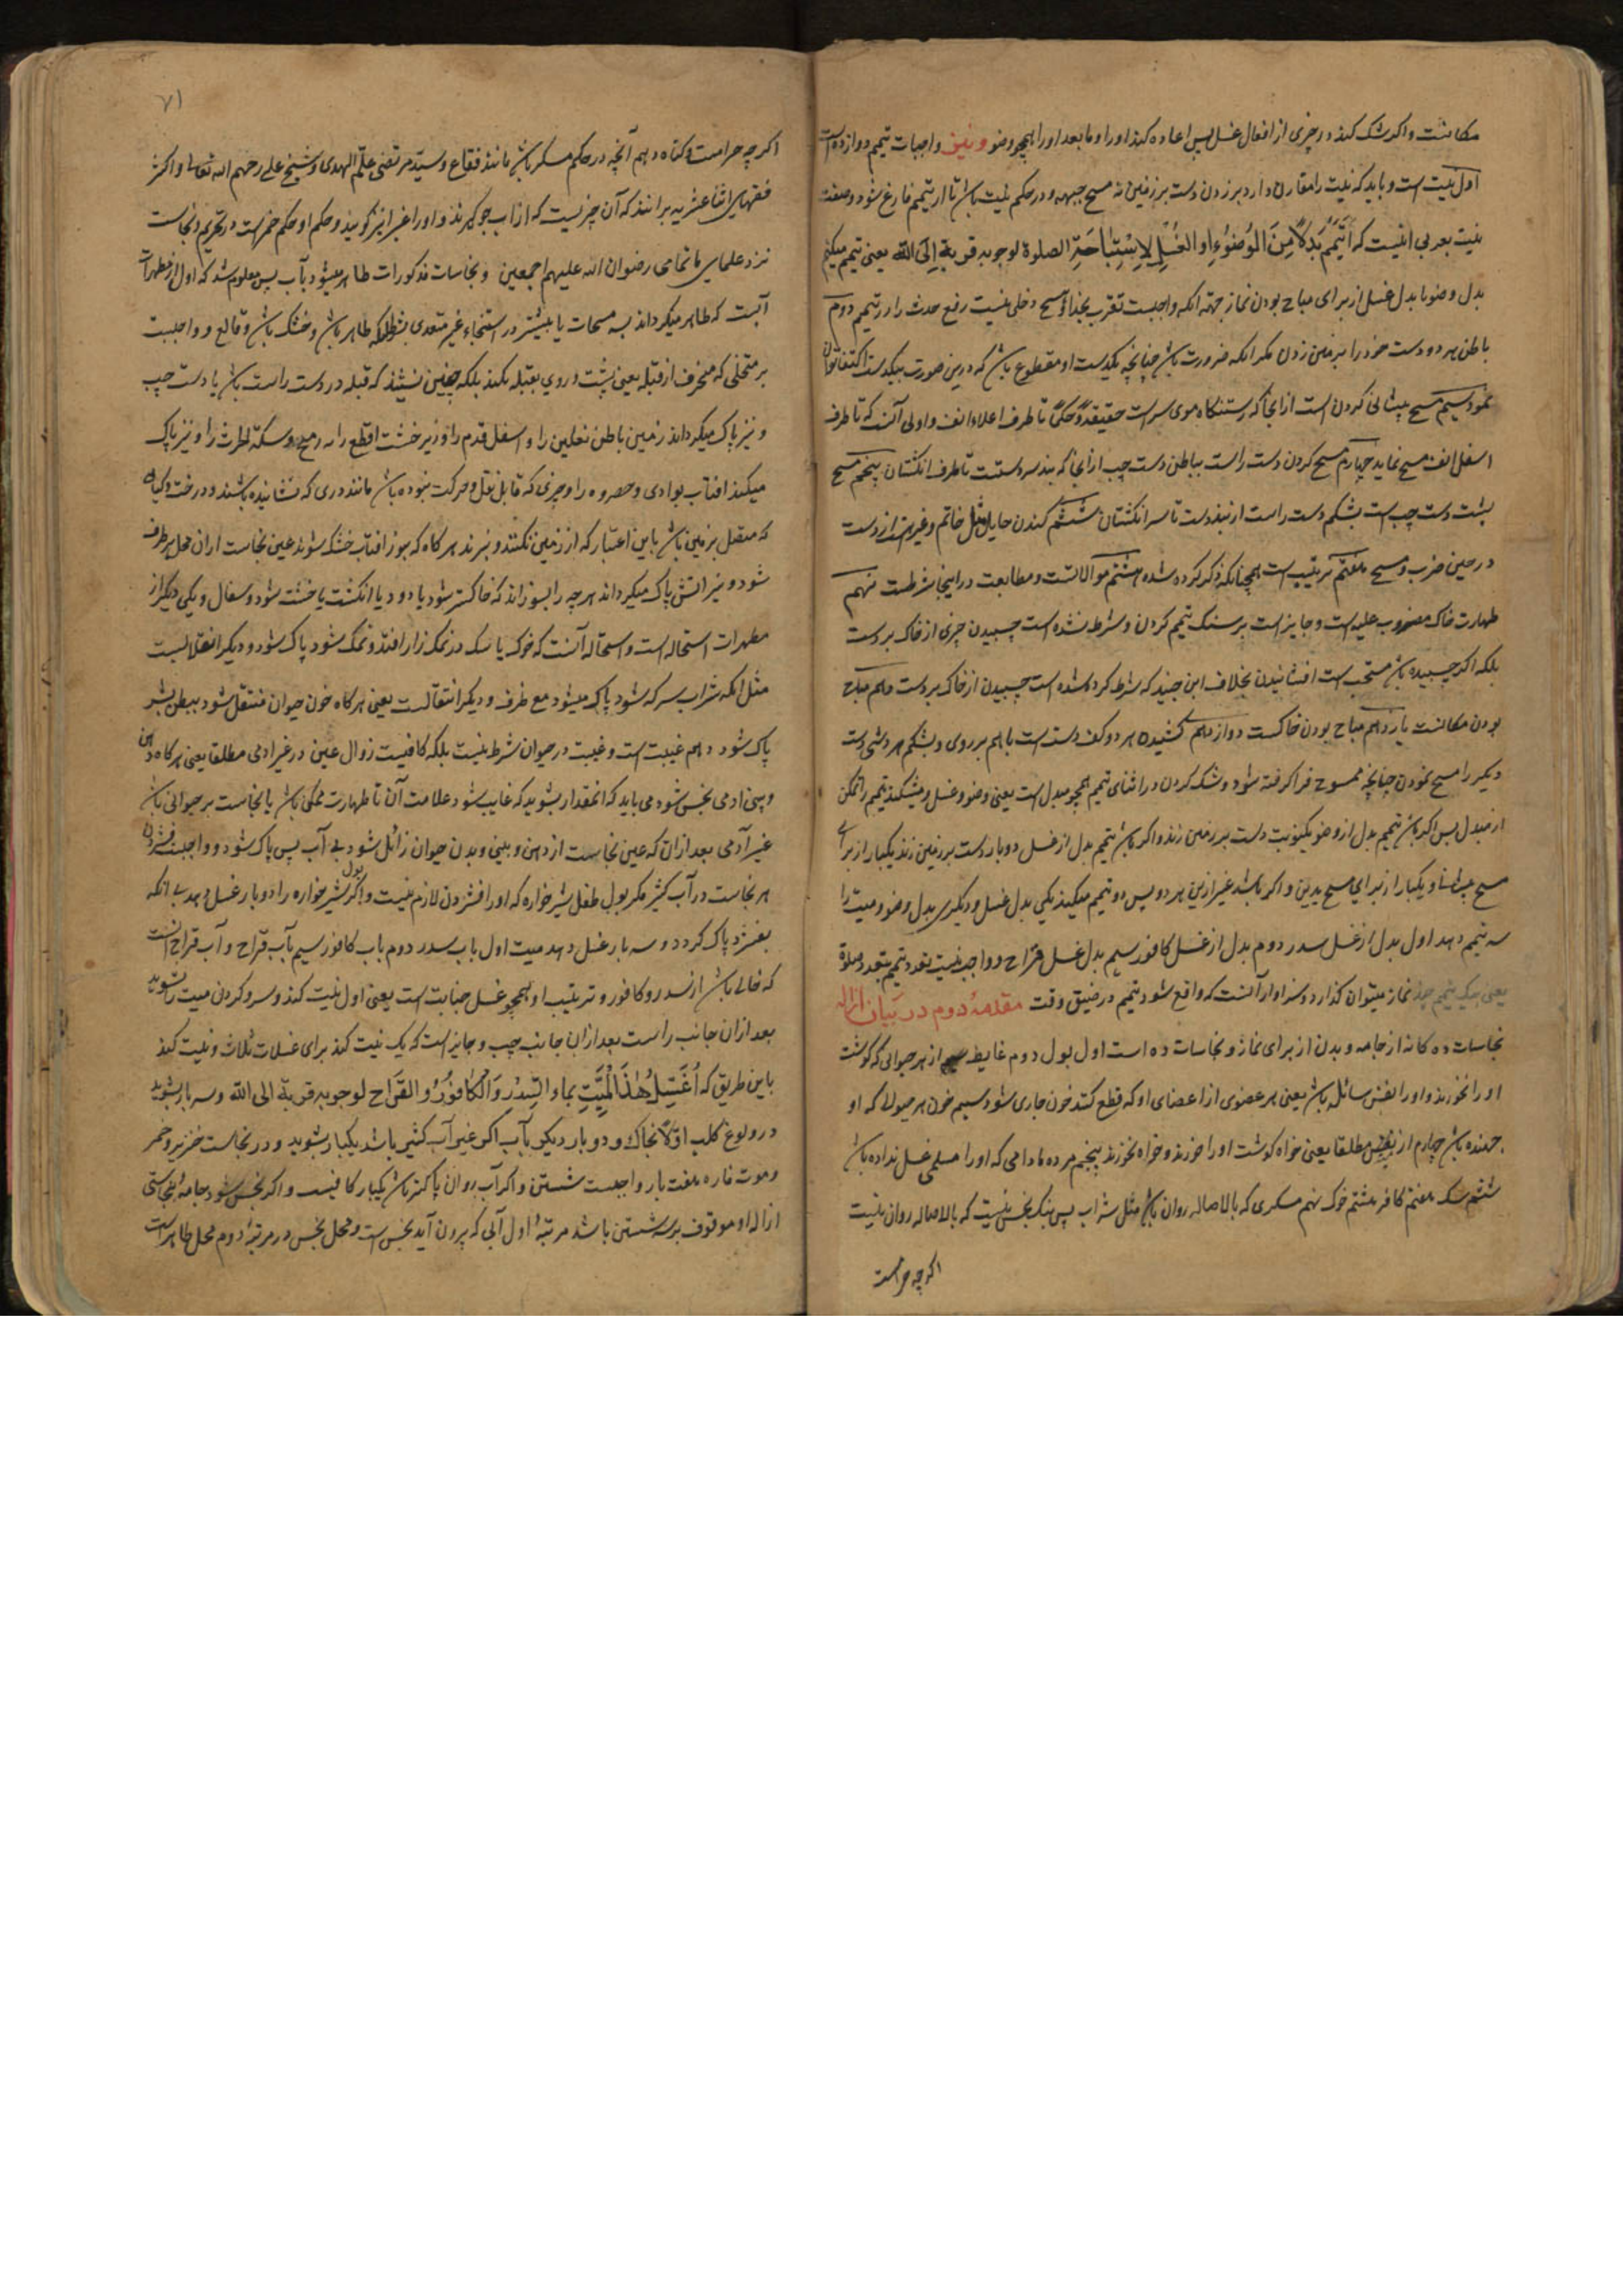 مکانست و اکر شک کند در چیزی از افعال غسل پس اعاده کند او را و ما بعد او را همچو وضو و نیز واجبات تیمم دوازده است
اول نیت است و باید که نیت را مقارن دارد بر زدن دست بر زمین نه مسح جبهه و در حکم نیت باشد تا از تیمم فارغ شود و صفت
نیت بعربی اینست که اَتَیَمَّمُ بَدَلاً مِنَ الوُضُوءِ اَوِ الغُسلِ لِاِستِبَاحَةِ الصلوة لوجوبه قربة اِلَی الله یعنی تیمم میکنم
بدل وضو یا بدل غسل از برای مباح بودن نماز جهة انکه واجبست تقرب بخدا و هیچ دخلی نیست رفع حدث را در تیمم دوم
باطن هر دو دست خود را بر زمین زدن مکر انکه ضرورت باشد چنانچه یکدست او مقطوع باشد که درین صورت بیکدست اکتفا توان
نمود سیم مسح پیشانی کردن است از آنجا که رستنکاه موی سر است حقیقةً و حکماً تا طرف اعلاء انف و اولی آنست که تا طرف
اسفل انف مسح نماید چهارم مسح کردن دست راست بباطن دست چپ از آنجا که بند سر دستست تا طرف انکشتان پنجم مسح
پشت دست چپ است بشکم دست راست از بند دست تا سر انکشتان ششم کندن حایل مثل خاتم و غیره است از دست
در حین ضرب و مسح هفتم ترتیب است همچنانکه ذکر کرده شده هشتم موالاتست و متابعت در اینجا شرطست نهم
طهارت خاک مضروب علیه است و جایز است بر سنک تیمم کردن و شرط نشده است چسبیدن چیزی از خاک بر دست
بلکه اکر چسبیده باشد مستحب است افشانیدن بخلاف ابن جنید که شرط کرده شده است چسبیدن از خاک بر دست دهم مباح
بودن مکانست یازدهم مباح بودن خاکست دوازدهم کشیدن هر دو کف دست است با هم بر روی و بشکم هر دستی دست
دیکر را مسح نمودن چنانچه ممسوح فرا کرفته شود و شک کردن در اثنای تیمم همچو مبدل است یعنی وضو و غسل و میشکند تیمم را تمکن
از مبدل پس اکر باشد تیمم بدل از وضو یکنوبت دست بر زمین زند و اکر باشد تیمم بدل از غسل دوبار دست بر زمین زند یکبار از برای
مسح پیشانی و یکبار از برای مسح یدین و اکر باشد غیر ازین هر دو پس دو تیمم میکند یکی بدل غسل و دیکری بدل وضو و میت را
سه تیمم دهد اول بدل از غسل سدر دوم بدل از غسل کافور سیم بدل غسل قراح و واجب نیست تعدد تیمم بتعدد صلوة
یعنی بیک تیمم چند نماز میتوان کذارد و سزاوار آنست که واقع شود تیمم در ضیق وقت مقدمهٔ دوم در بیان ازاله
نجاسات ده کانه از جامه و بدن از برای نماز و نجاسات ده است اول بول دوم غایط از هر حیوانی که کوشت
او را نخورند و او را نفس سائله باشد یعنی هر عضوی از اعضای او که قطع کنند خون جاری شود سیم خون هر حیوانی که او
جهنده باشد چهارم از مطلقا یعنی خواه کوشت او را خورند و خواه نخورند پنجم مرده مادامی که او را مسلمی غسل نداده باشد
ششم سک هفتم کافر هشتم خوک نهم مسکری که بالاصاله روان باشد مثل شراب پس بنک نجس نیست که بالاصاله روان نیست
اکرچه حرامست
۷۱
اکرچه حرامست و کناه دهم آنچه در حکم مسکر باشد مانند فقاع و سید مرتضی علم الهدی و شیخ علی رحمهم الله تعالی و اکثر
فقهای اثنا عشریه برانند که آن چیزیست که از آب جو کیرند و او را غبرا نیز کویند و حکم او حکم خمر است در تحریم و نجاست
نزد علمای ما تمامی رضوان الله علیهم اجمعین و نجاسات مذکورات طاهر میشود بآب پس معلوم شد که اول از مطهرات
آبست که طاهر میکرداند بسه مسحات یا بیشتر در استنجاء غیر متعدی بشرط انکه طاهر باشد و خشک باشد و قالع و واجبست
بر متخلی که منحرف از قبله یعنی پشت و روی بقبله نکند بلکه چنین نشیند که قبله در دست راست باشد یا دست چپ
و نیز پاک میکرداند زمین باطن نعلین را و اسفل قدم را و زیر خشت اقطع را و سکة الحرث را و نیز پاک
میکند افتاب بوادی و حصر و را و چیزی که قابل نقل و حرکت نبوده باشد مانند دری که نشانیده باشند و درخت و کیاه
که متصل بزمین باشد باین اعتبار که از زمین نکنند و نبرند هر کاه که بنور افتاب خشک شوند و عین نجاست از ان محل بر طرف
شود و نیز اتش پاک میکرداند هر چه را بسوزاند که خاکستر شود یا دود یا انکشت یا خشت شود و سفال و یکی دیکر از
مطهرات استحاله است و استحاله آنست که خوک یا سک در نمک زار افتد و نمک شود پاک شود و دیکر انقلابست
مثل انکه شراب سرکه شود پاک میشود مع ظرف و دیکر انتقالست یعنی هر کاه خون حیوان منتقل شود ببطن بشه
پاک شود دهم غیبت است و غیبت در حیوان شرط نیست بلکه کافیست زوال عین در غیر ادمی مطلقا یعنی هر کاه دهن
و بینی ادمی نجس شود می باید که انمقدار بشوید که غایب شود علامت آن تا طهارت ممکن باشد یا نجاست بر حیوانی باشد
غیر آدمی بعد از ان که عین نجاست از دهن و بینی و بدن حیوان زائل شود بی آب پس پاک شود و واجبست فشردن
هر نجاست در آب کثیر مکر بول طفل شیر خواره که او را فشردن لازم نیست و اکر بول شیر خواره را دو بار غسل دهد بی انکه
بفشرد پاک کردد و سه بار غسل دهد میت اول بآب سدر دوم بآب کافور سیم بآب قراح و آب قراح انست
که خالی باشد از سدر و کافور و ترتیب او همچو غسل جنابت است یعنی اول نیت کند و سر و کردن میت را بشوید
بعد از ان جانب راست بعد از ان جانب چپ و جایز است که یک نیت کند برای غسلات ثلاث و نیت کند
باین طریق که اُغَسِّلُ هٰذَا المَیِّتِ بماءِ السِّدرِ وَ الکافُورِ وَ القَرَاحِ لوجوبه قربة الی الله و سه بار بشوید
در ولوغ کلب اوّلاً بخاک و دو بار دیکر بآب اکر غیر آب کثیر باشد یکبار بشوید و در نجاست خنزیر و خمر
و موت فاره هفت بار واجبست شستن و اکر آب روان یا کثیر باشد یکبار کافیست و اکر نجس شود جامه بنجاستی
ازاله او موقوف بر سه شستن باشد مرتبهٔ اول آبی که بیرون آید نجس است و محل نجس و در مرتبهٔ دوم محل طاهر است